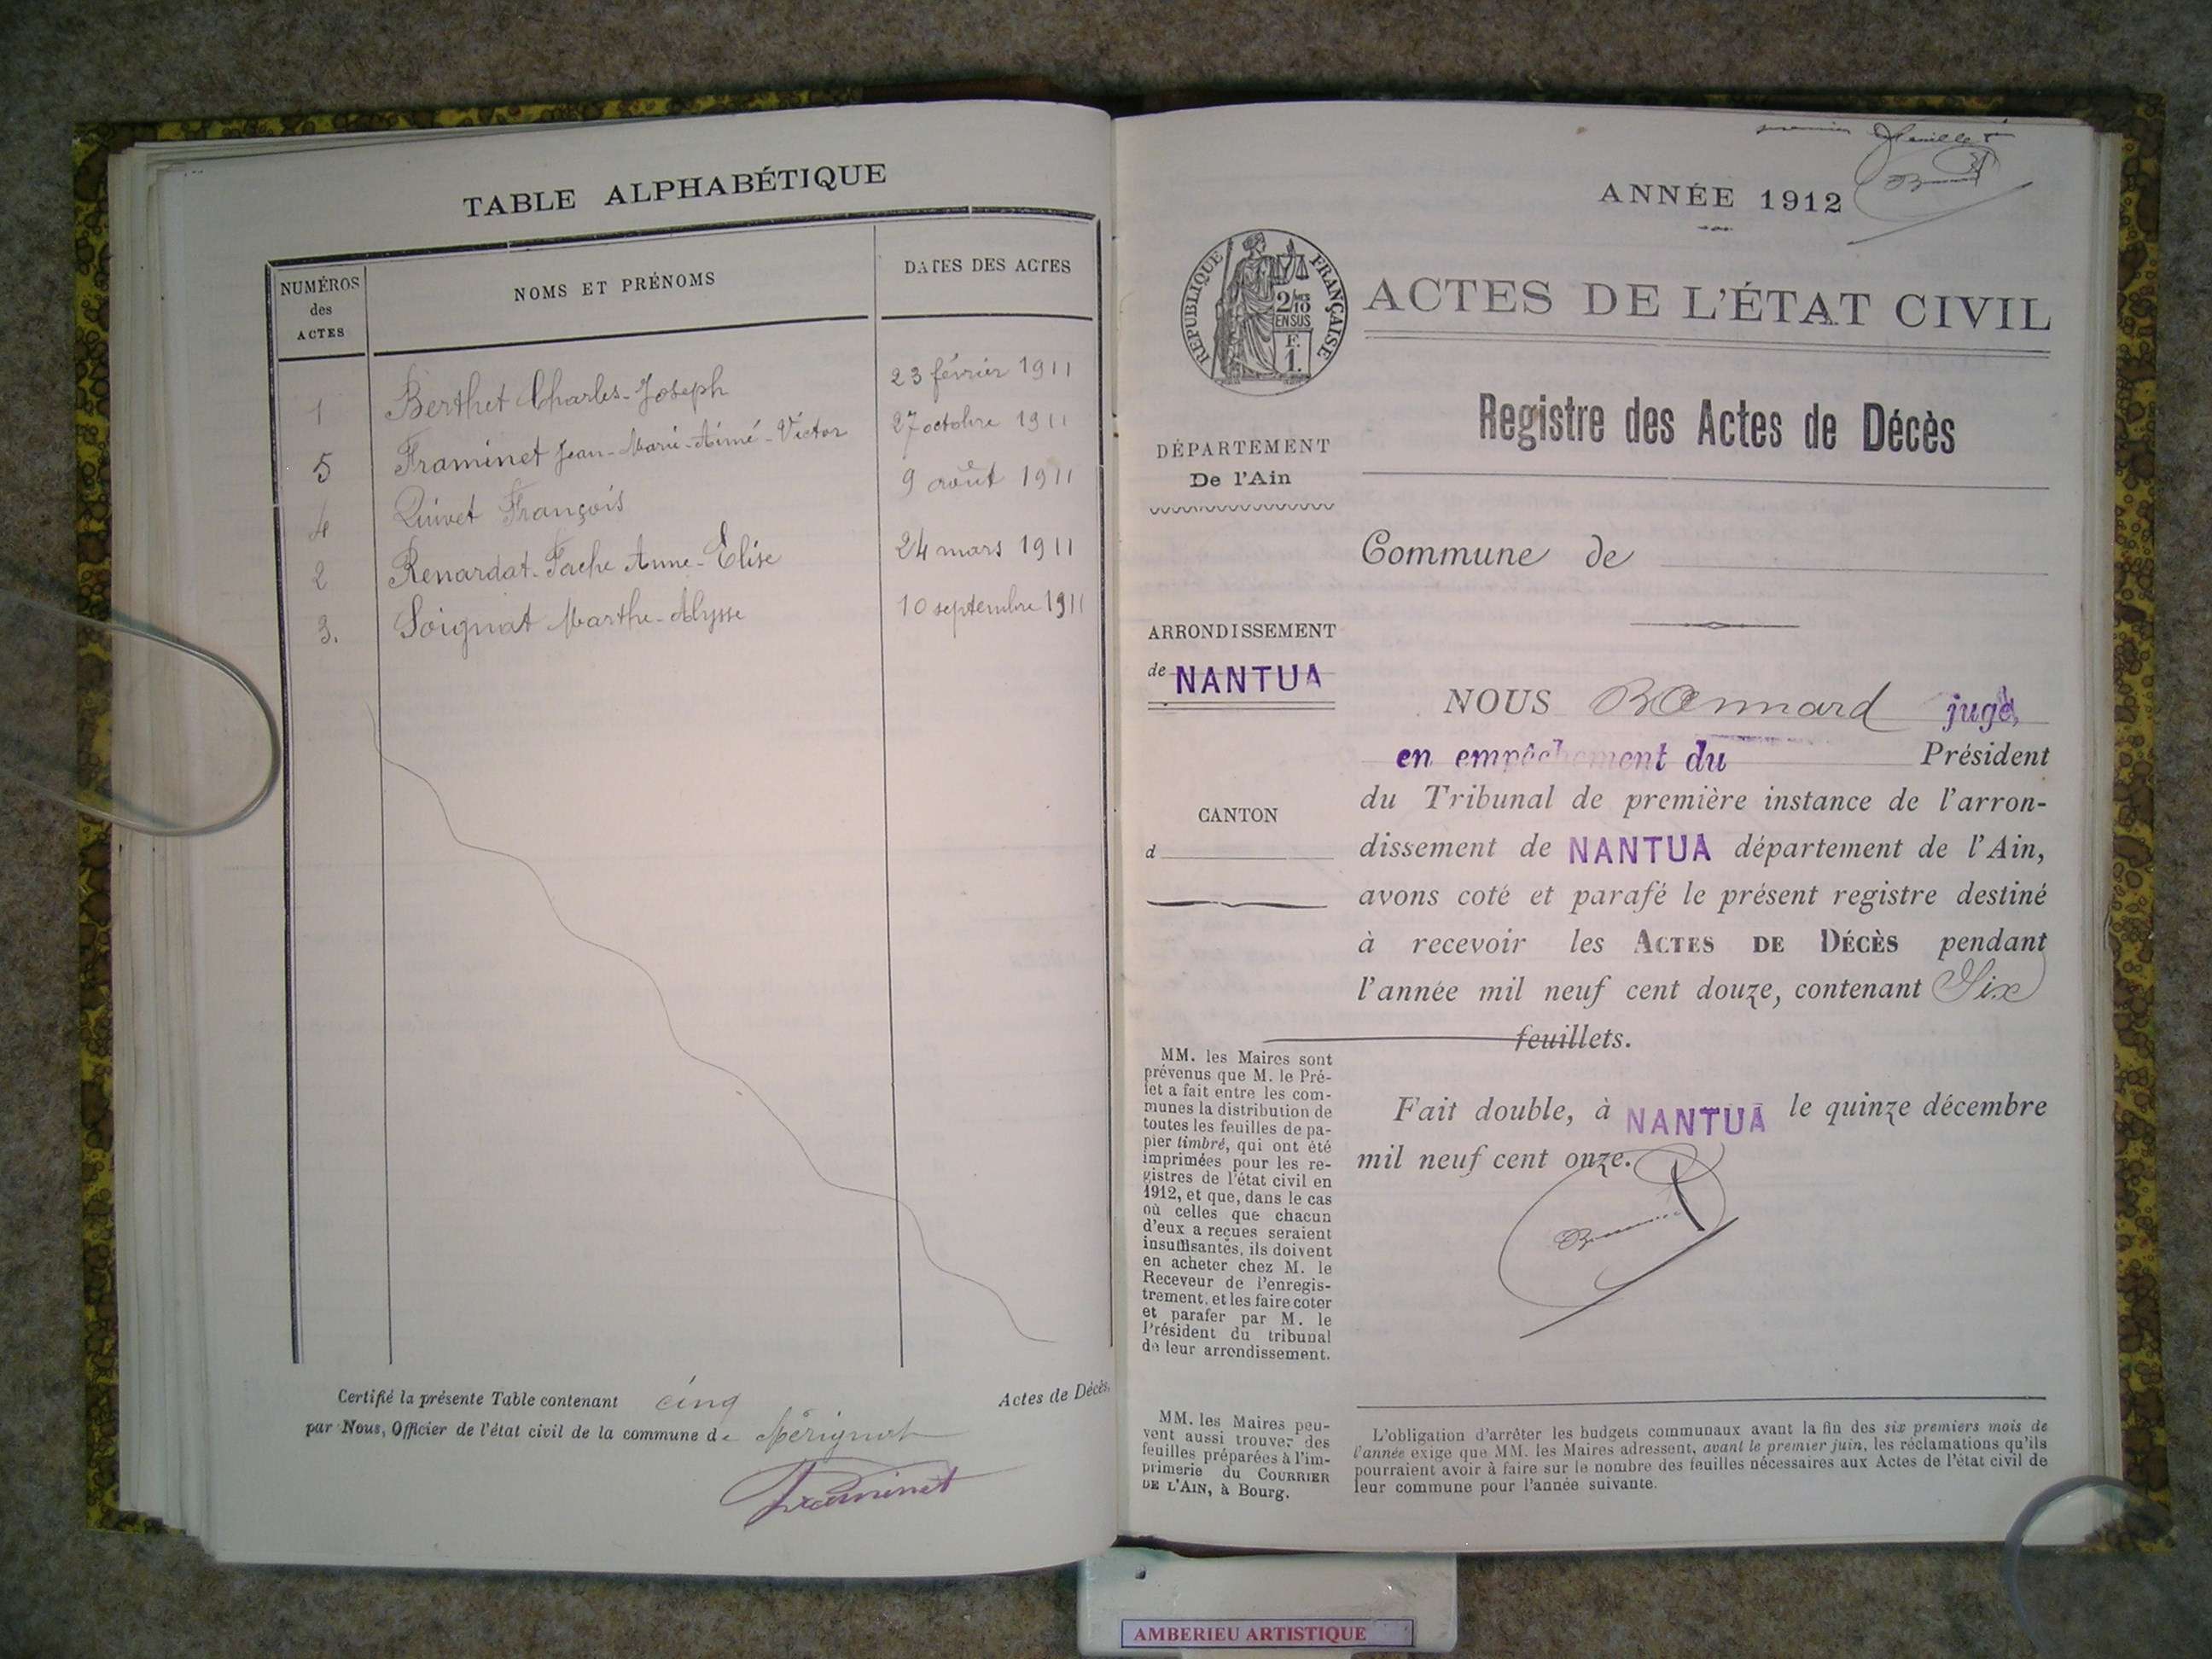 TABLE ALPHABÉTIQUE
NUMÉROS
des
ACTES
NOMS ET PRÉNOMS
DATES DES ACTES
1 Berthet Charles-Joseph 23 février 1911
5 Framinet Jean-Marie-Aimé-Victor 27 octobre 1911
4 Quivet François 9 août 1911
2 Renardat-Fache Anne-Élise 24 mars 1911
3. Soignat Marthe-Alysse 10 septembre 1911
Certifié la présente Table contenant cinq Actes de Décès,
par Nous, Officier de l'état civil de la commune de Mérignat
Framinet
premier feuillet
ANNÉE 1912
RÉPUBLIQUE FRANÇAISE
2/10
EN SUS
F.
1.
ACTES DE L'ÉTAT CIVIL
Registre des Actes de Décès
DÉPARTEMENT
De l'Ain
Commune de
ARRONDISSEMENT
de NANTUA
CANTON
d
NOUS Bonnard juge,
en empêchement du Président
du Tribunal de première instance de l'arron-
dissement de NANTUA département de l'Ain,
avons coté et parafé le présent registre destiné
à recevoir les ACTES DE DÉCÈS pendant
l'année mil neuf cent douze, contenant Six
feuillets.
Fait double, à NANTUA le quinze décembre
mil neuf cent onze.
MM. les Maires sont
prévenus que M. le Pré-
fet a fait entre les com-
munes la distribution de
toutes les feuilles de pa-
pier timbré, qui ont été
imprimées pour les re-
gistres de l'état civil en
1912, et que, dans le cas
où celles que chacun
d'eux a reçues seraient
insuffisantes, ils doivent
en acheter chez M. le
Receveur de l'enregis-
trement, et les faire coter
et parafer par M. le
Président du tribunal
de leur arrondissement.
MM. les Maires peu-
vent aussi trouver des
feuilles préparées à l'im-
primerie du COURRIER
DE L'AIN, à Bourg.
L'obligation d'arrêter les budgets communaux avant la fin des six premiers mois de
l'année exige que MM. les Maires adressent, avant le premier juin, les réclamations qu'ils
pourraient avoir à faire sur le nombre des feuilles nécessaires aux Actes de l'état civil de
leur commune pour l'année suivante.
AMBERIEU ARTISTIQUE